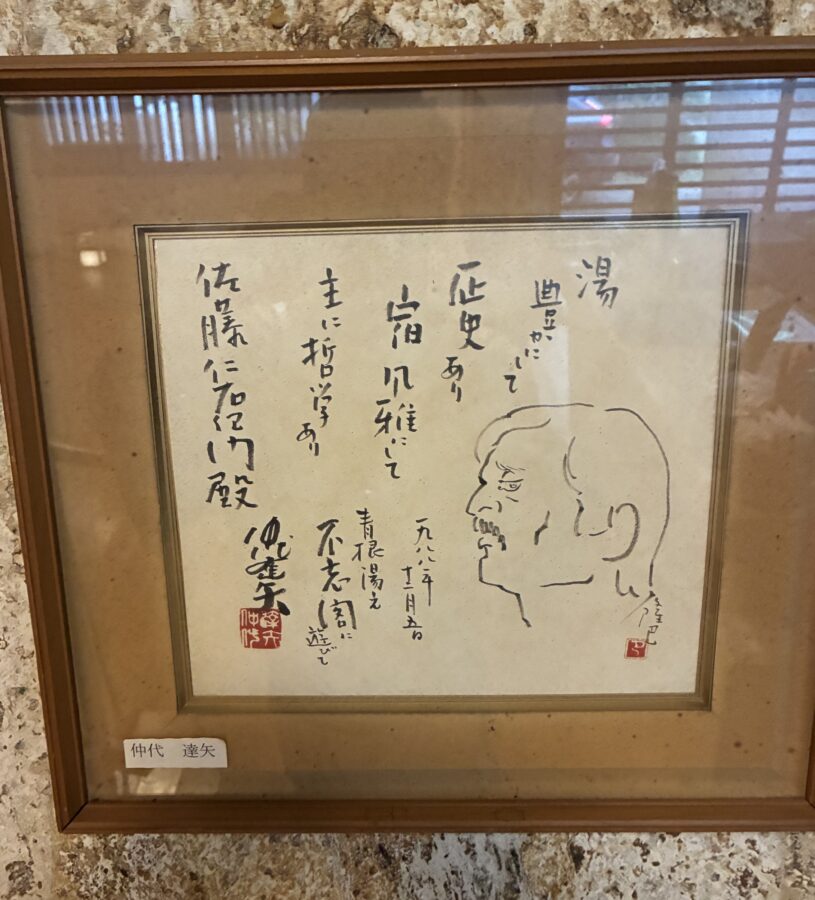 湯
豊かにして
歴史あり
宿風雅にして
主に哲学あり
一九八八年
十二月五日
青根湯元
不忘閣に
遊びて
佐藤仁右衛門殿
仲代達矢
仲代達矢
仲代　達矢